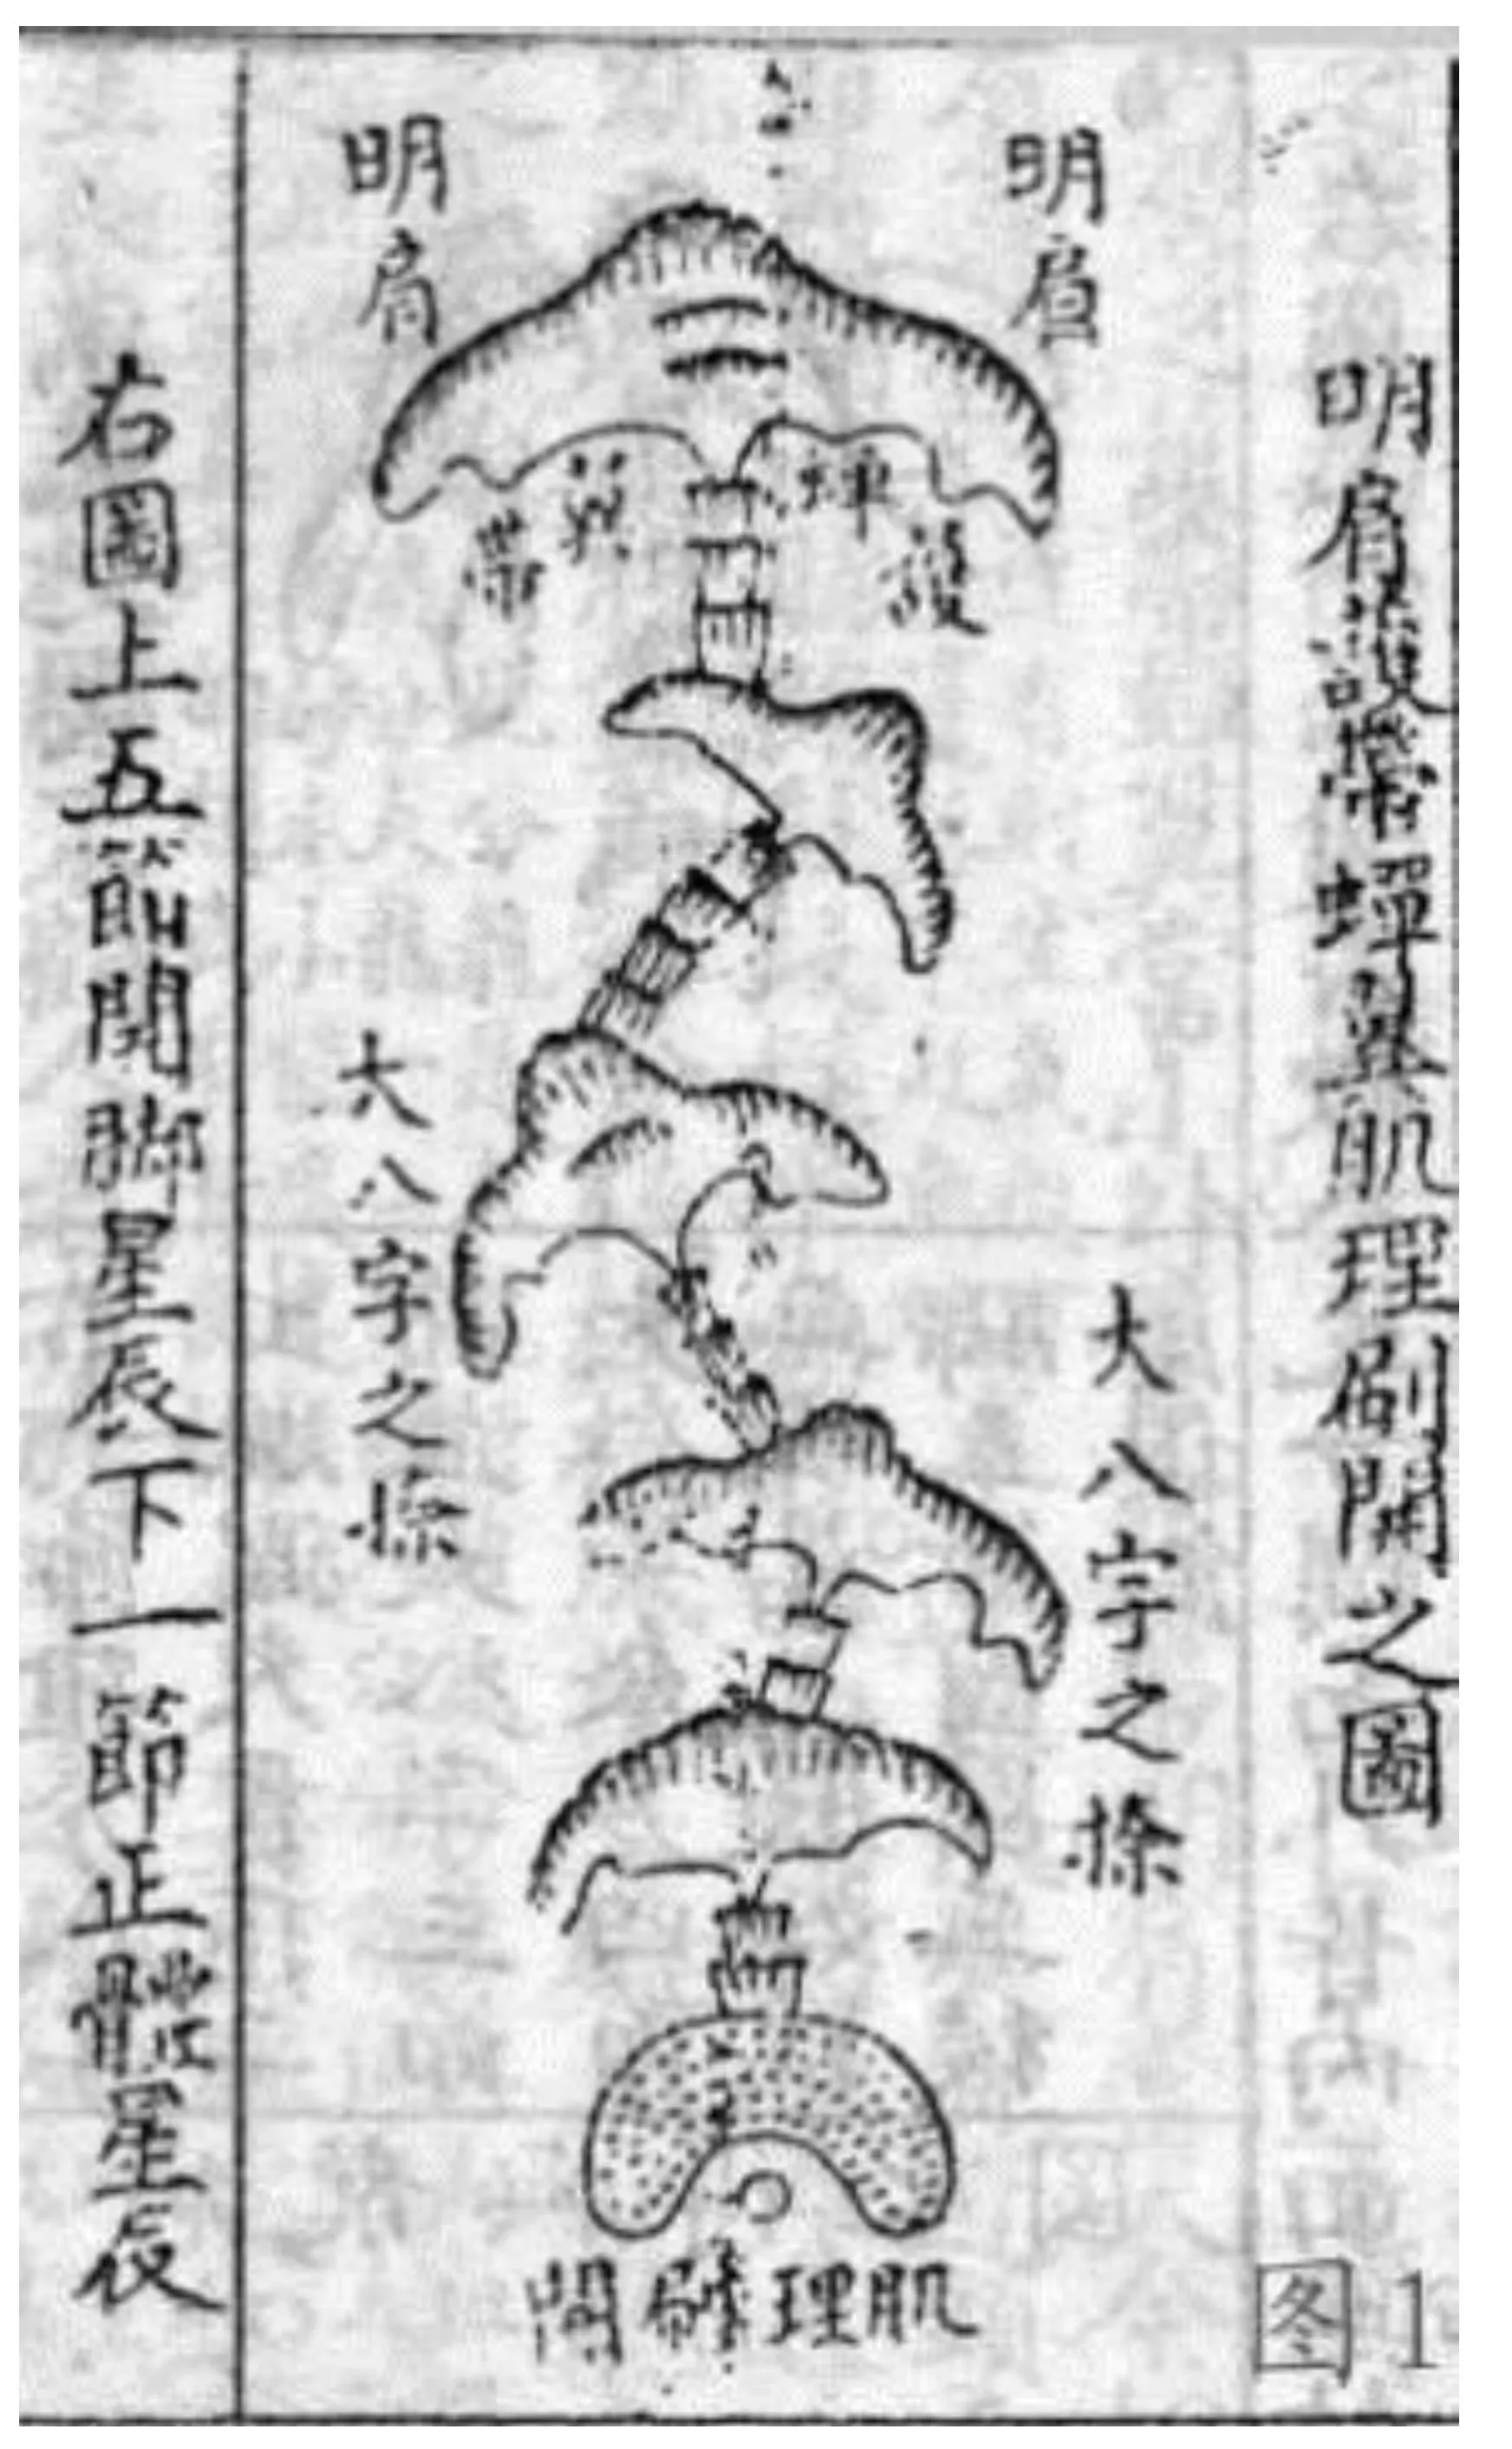 明肩護帶蟬翼肌理刷開之圖
明肩
明肩
護蟬翼帶
大八字之
大八字之
肌理開
右圖上五節開腳星辰下一節正體星辰
图1